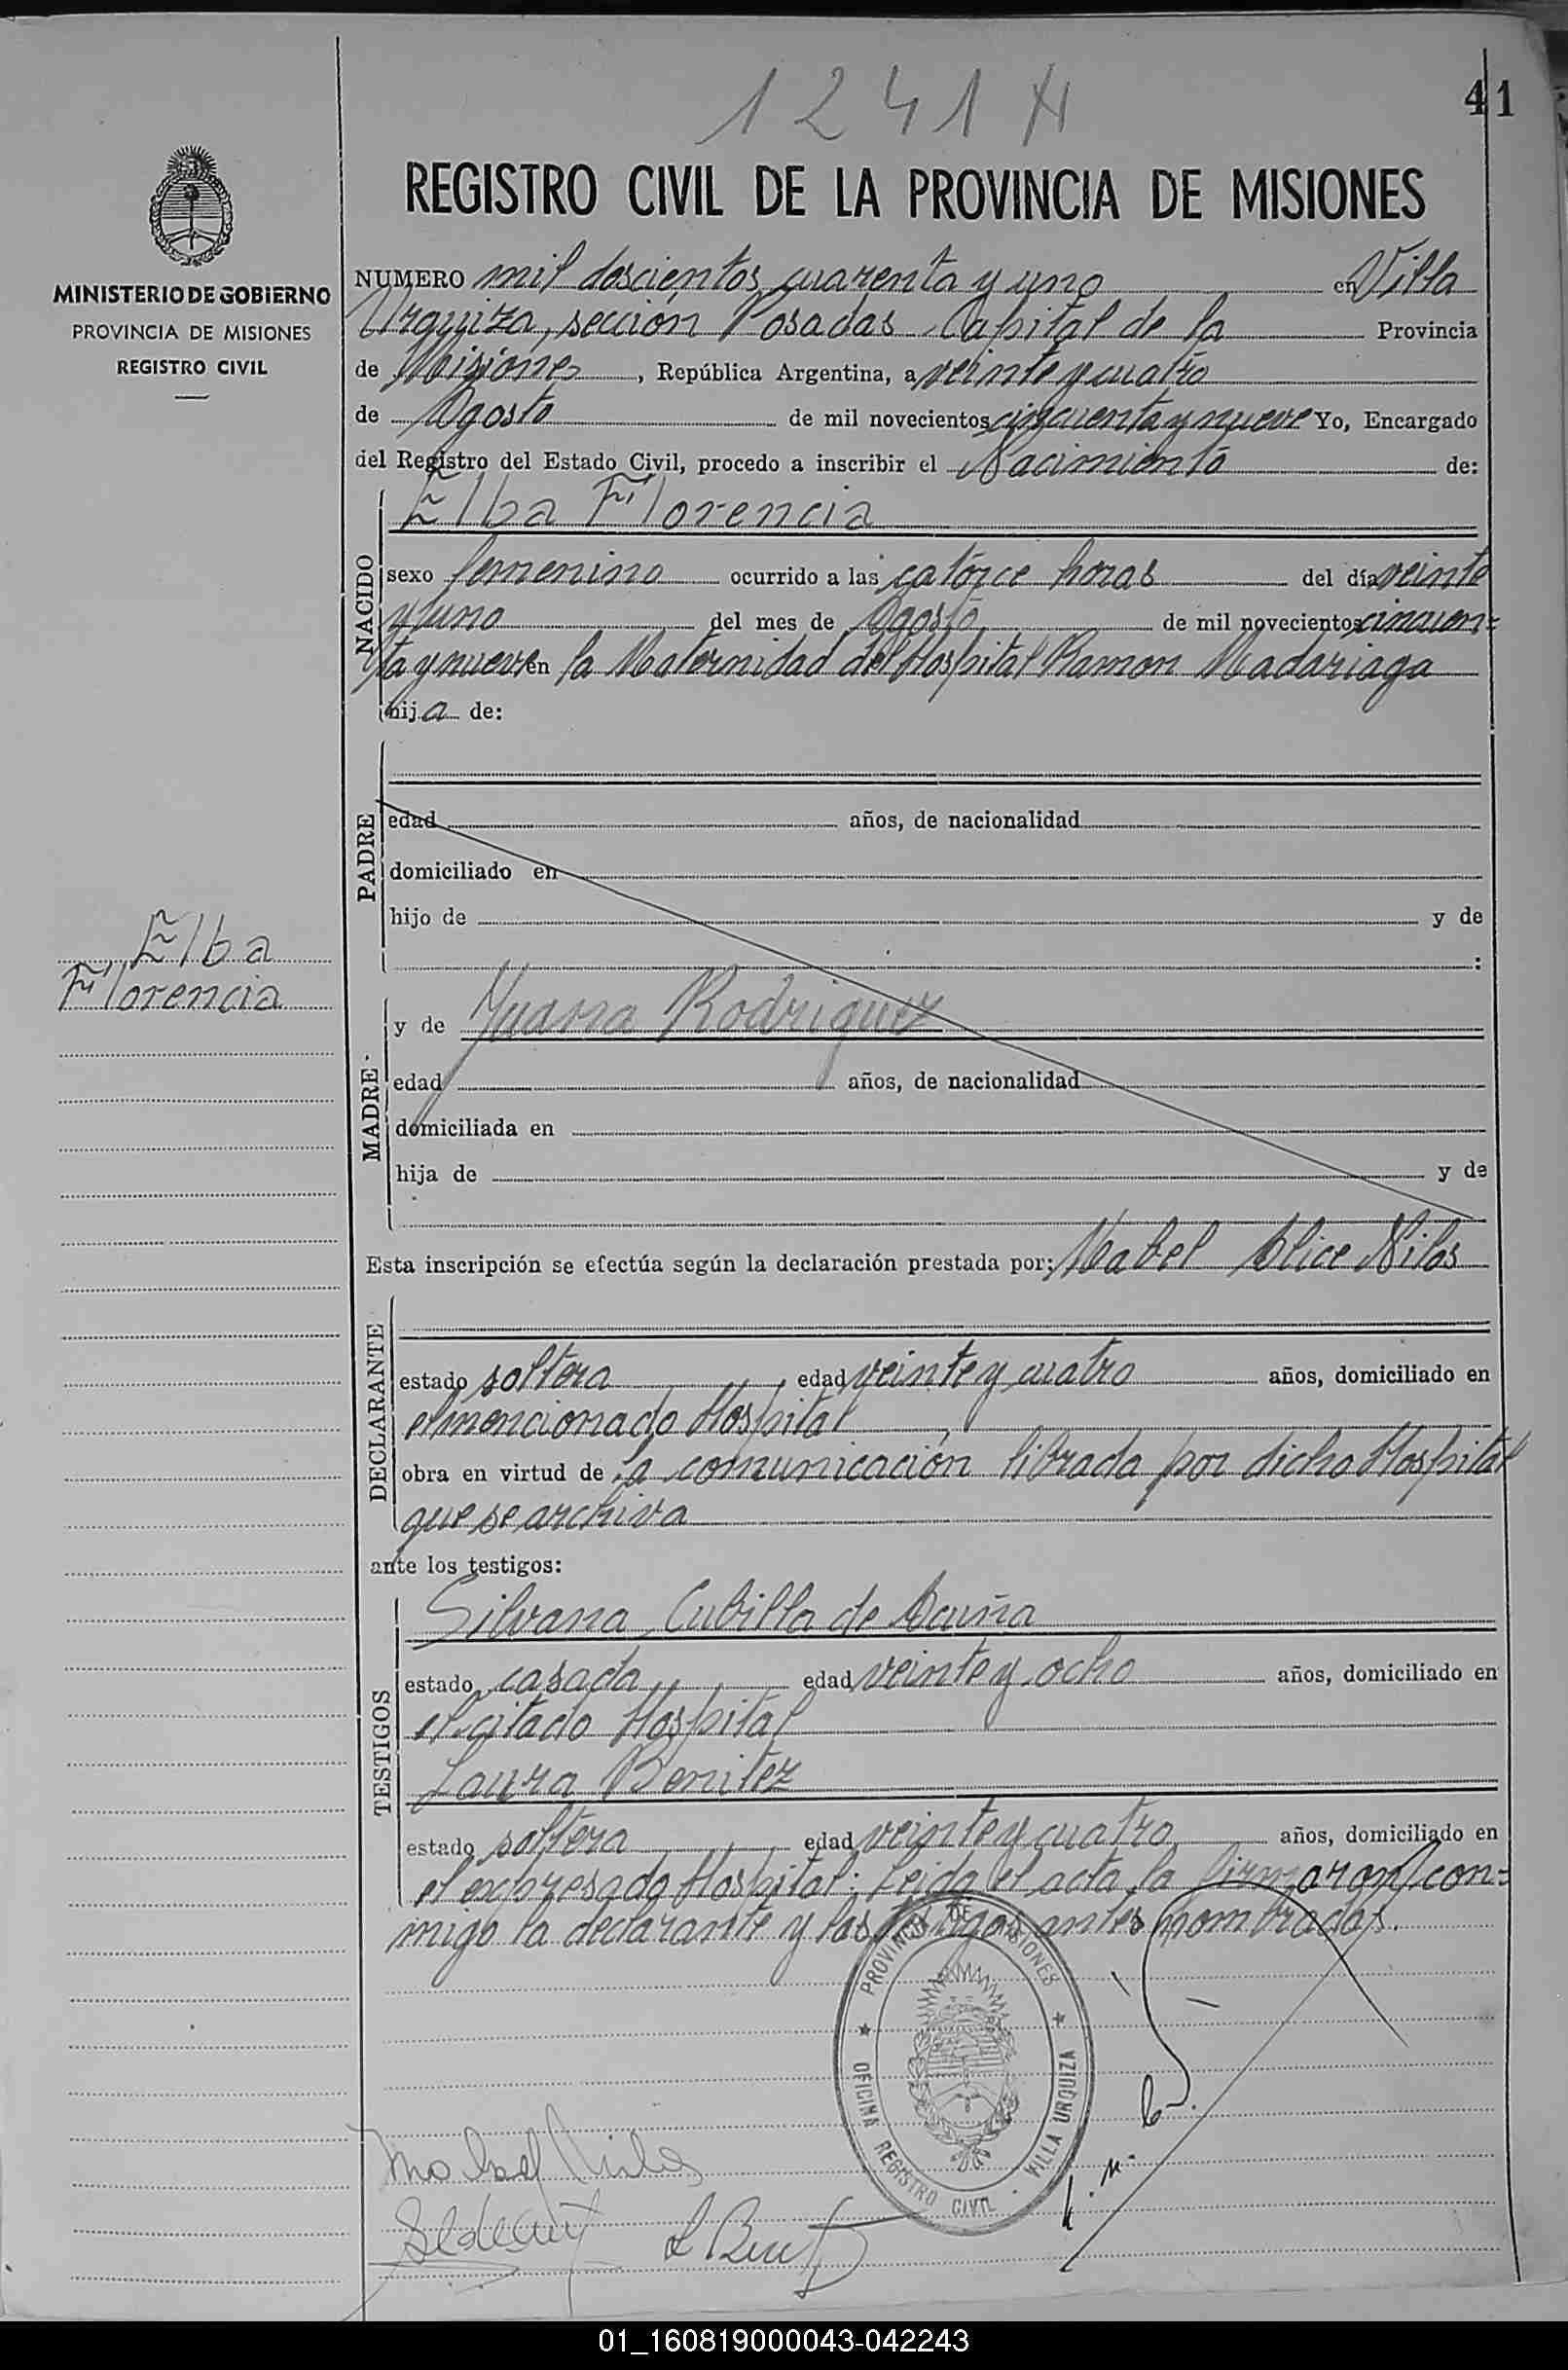 1241 H
41
REGISTRO CIVIL DE LA PROVINCIA DE MISIONES
MINISTERIO DE GOBIERNO
PROVINCIA DE MISIONES
REGISTRO CIVIL
NUMERO mil doscientos cuarenta y uno en Villa
Urquiza, sección Posadas Capital de la Provincia
de Misiones, República Argentina, a veinte y cuatro
de Agosto de mil novecientos cincuenta y nueve Yo, Encargado
del Registro del Estado Civil, procedo a inscribir el Nacimiento de:
NACIDO
Elba Florencia
sexo femenino ocurrido a las catorce horas del día veinte
y uno del mes de Agosto de mil novecientos cincuen=
ta y nueve en la Maternidad del Hospital Ramon Madariaga
hija de:
PADRE
edad años, de nacionalidad
domiciliado en
hijo de y de
:
Elba
Florencia
MADRE
y de Juana Rodriguez
edad años, de nacionalidad
domiciliada en
hija de y de
Esta inscripción se efectúa según la declaración prestada por: Mabel Alice Nilos
DECLARANTE
estado soltera edad veinte y cuatro años, domiciliado en
el mencionado Hospital,
obra en virtud de la comunicación librada por dicho Hospital
que se archiva
ante los testigos:
TESTIGOS
Silvana Cubilla de Acuña
estado casada edad veinte y ocho años, domiciliado en
el citado Hospital
Laura Benitez
estado soltera edad veinte y cuatro años, domiciliado en
el expresado Hospital; Leida el acta, la firmaron con=
migo la declarante y los testigos antes nombrados.
PROVINCIA DE MISIONES
OFICINA REGISTRO CIVIL · VILLA URQUIZA
01_160819000043-042243